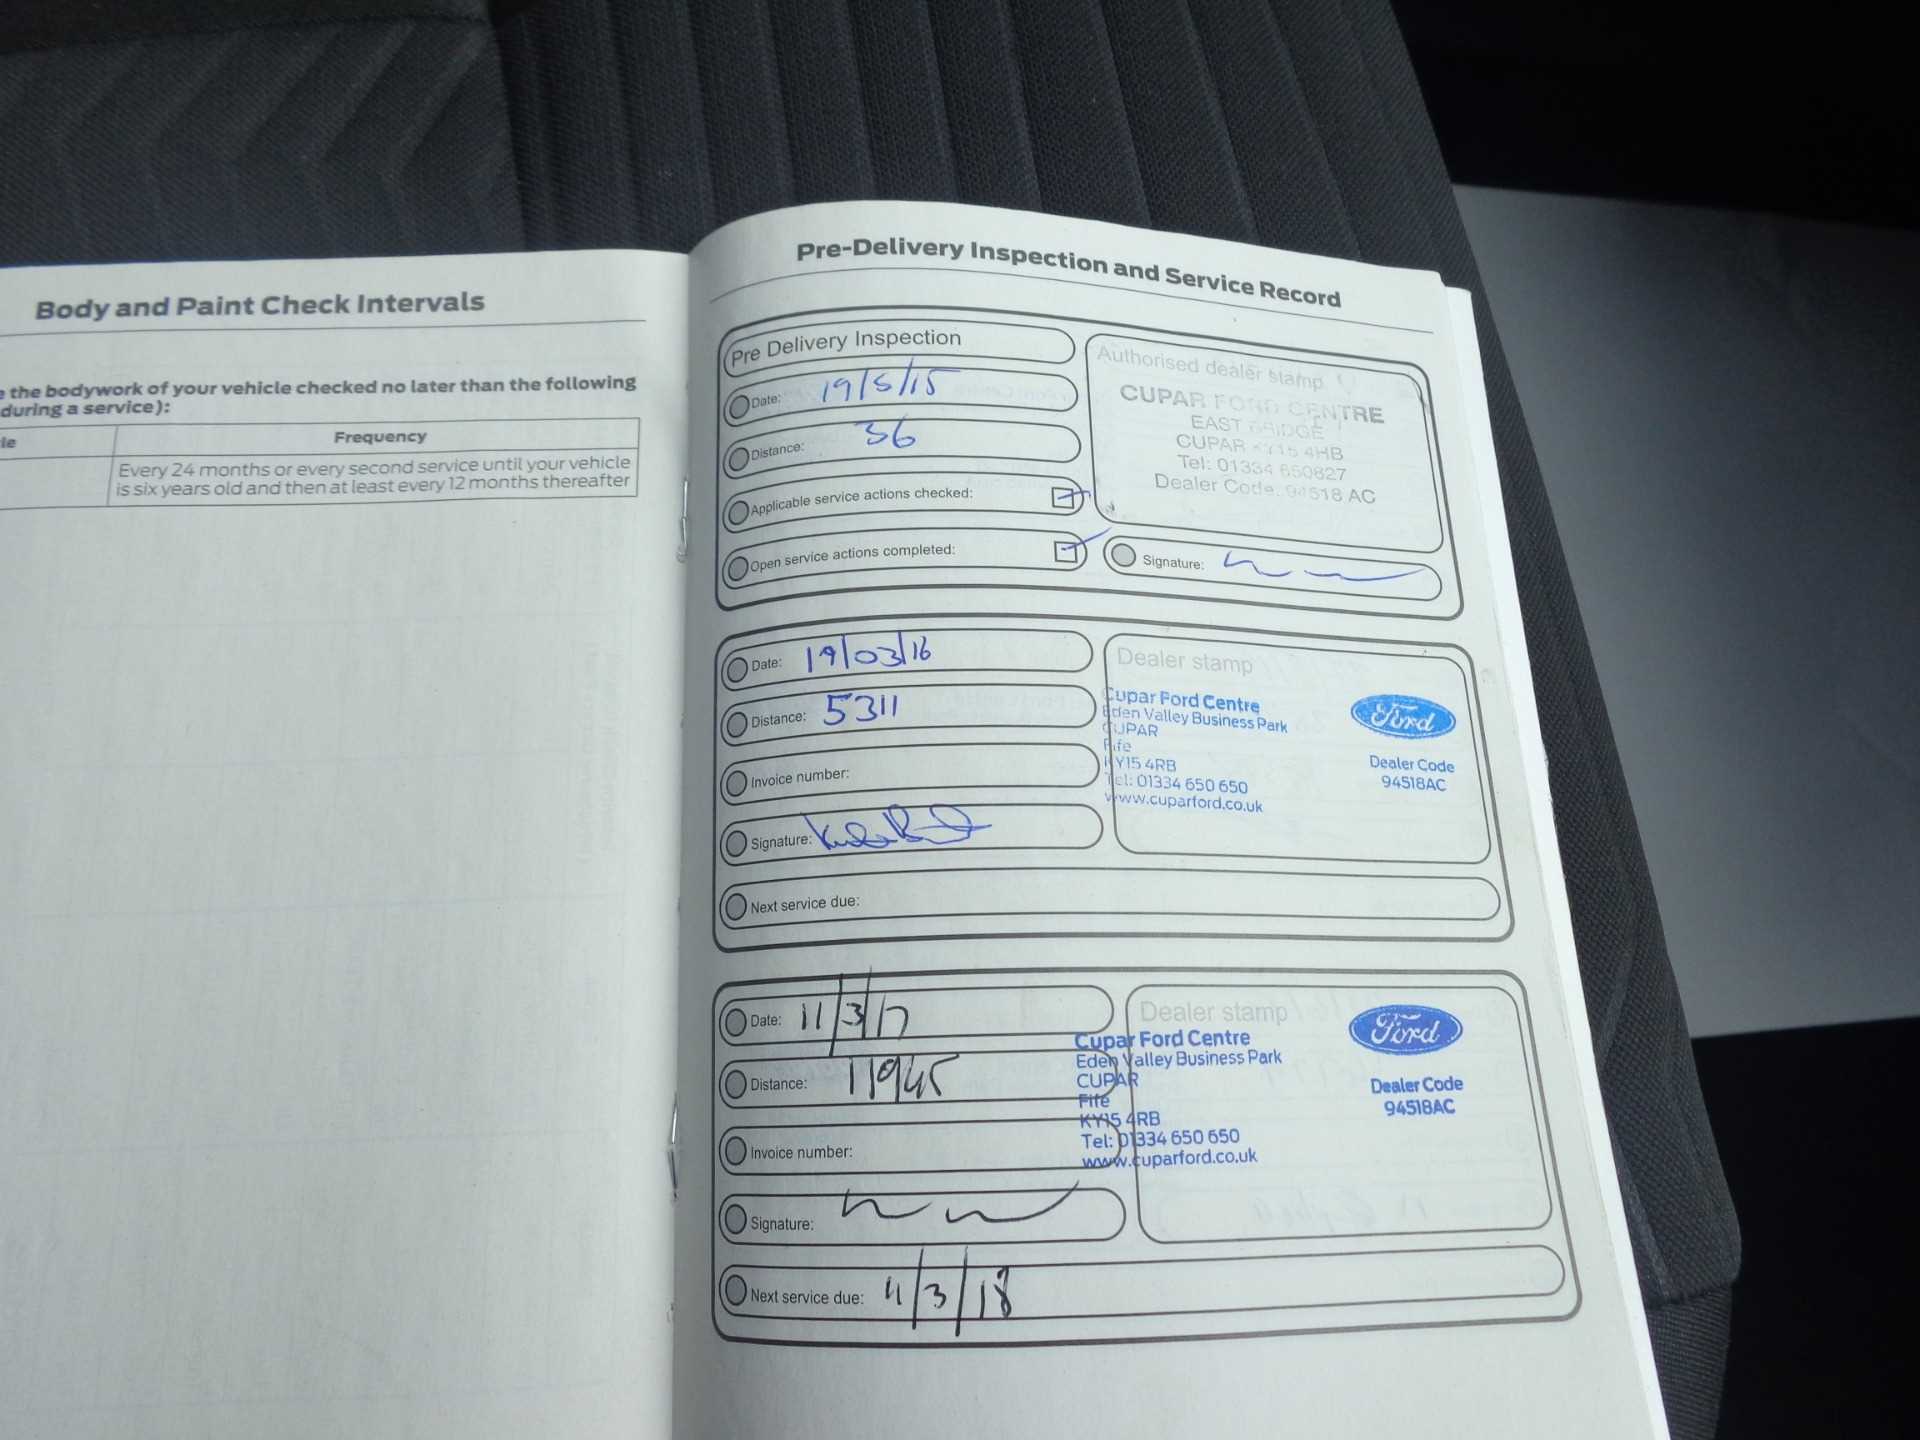 Body and Paint Check Intervals
the bodywork of your vehicle checked no later than the following
during a service):
Frequency
Every 24 months or every second service until your vehicle
is six years old and then at least every 12 months thereafter
Pre-Delivery Inspection and Service Record
Pre Delivery Inspection
Date: 19/5/15
Distance: 36
Applicable service actions checked:
Open service actions completed:
Authorised dealer stamp
CUPAR FORD CENTRE
EAST BRIDGE
CUPAR KY15 4HB
Tel: 01334 650827
Dealer Code. 94518 AC
Signature:
Date: 19/03/16
Distance: 5311
Invoice number:
Signature:
Next service due:
Dealer stamp
Cupar Ford Centre
Eden Valley Business Park
CUPAR
Fife
KY15 4RB
Tel: 01334 650 650
www.cuparford.co.uk
Ford
Dealer Code
94518AC
Date: 11/3/17
Distance: 11945
Invoice number:
Signature:
Next service due: 11/3/18
Dealer stamp
Cupar Ford Centre
Eden Valley Business Park
CUPAR
Fife
KY15 4RB
Tel: 01334 650 650
www.cuparford.co.uk
Ford
Dealer Code
94518AC